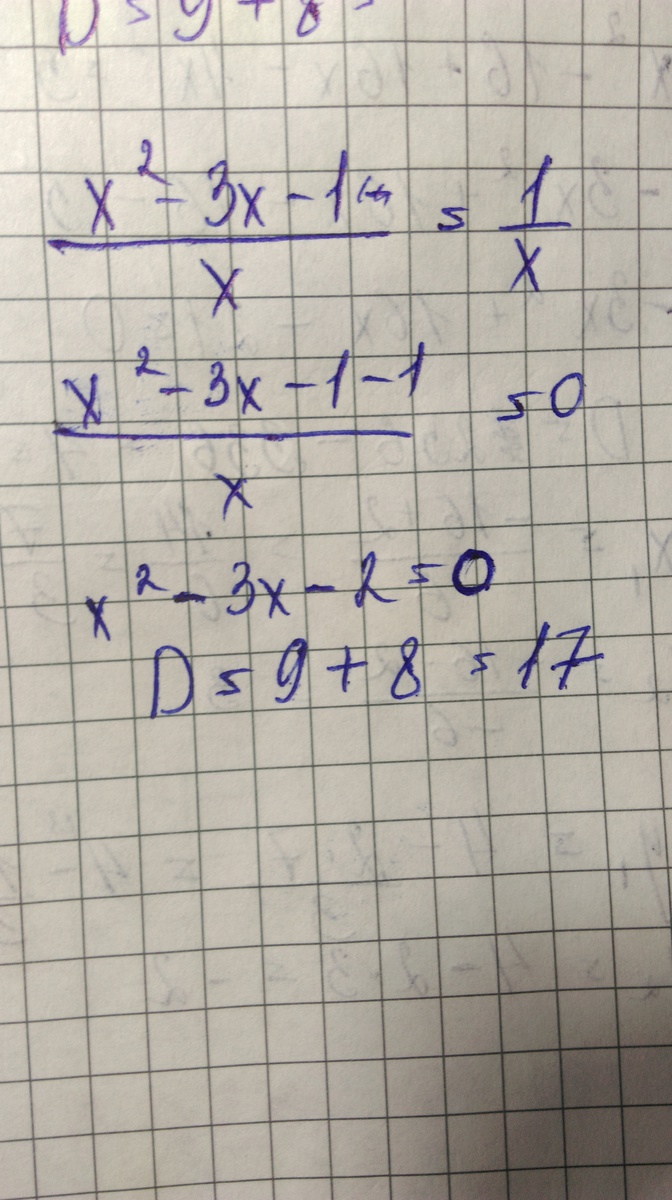 D = 9 + 8 =
x² - 3x - 1 / x = 1 / x
x² - 3x - 1 - 1 / x = 0
x² - 3x - 2 = 0
D = 9 + 8 = 17